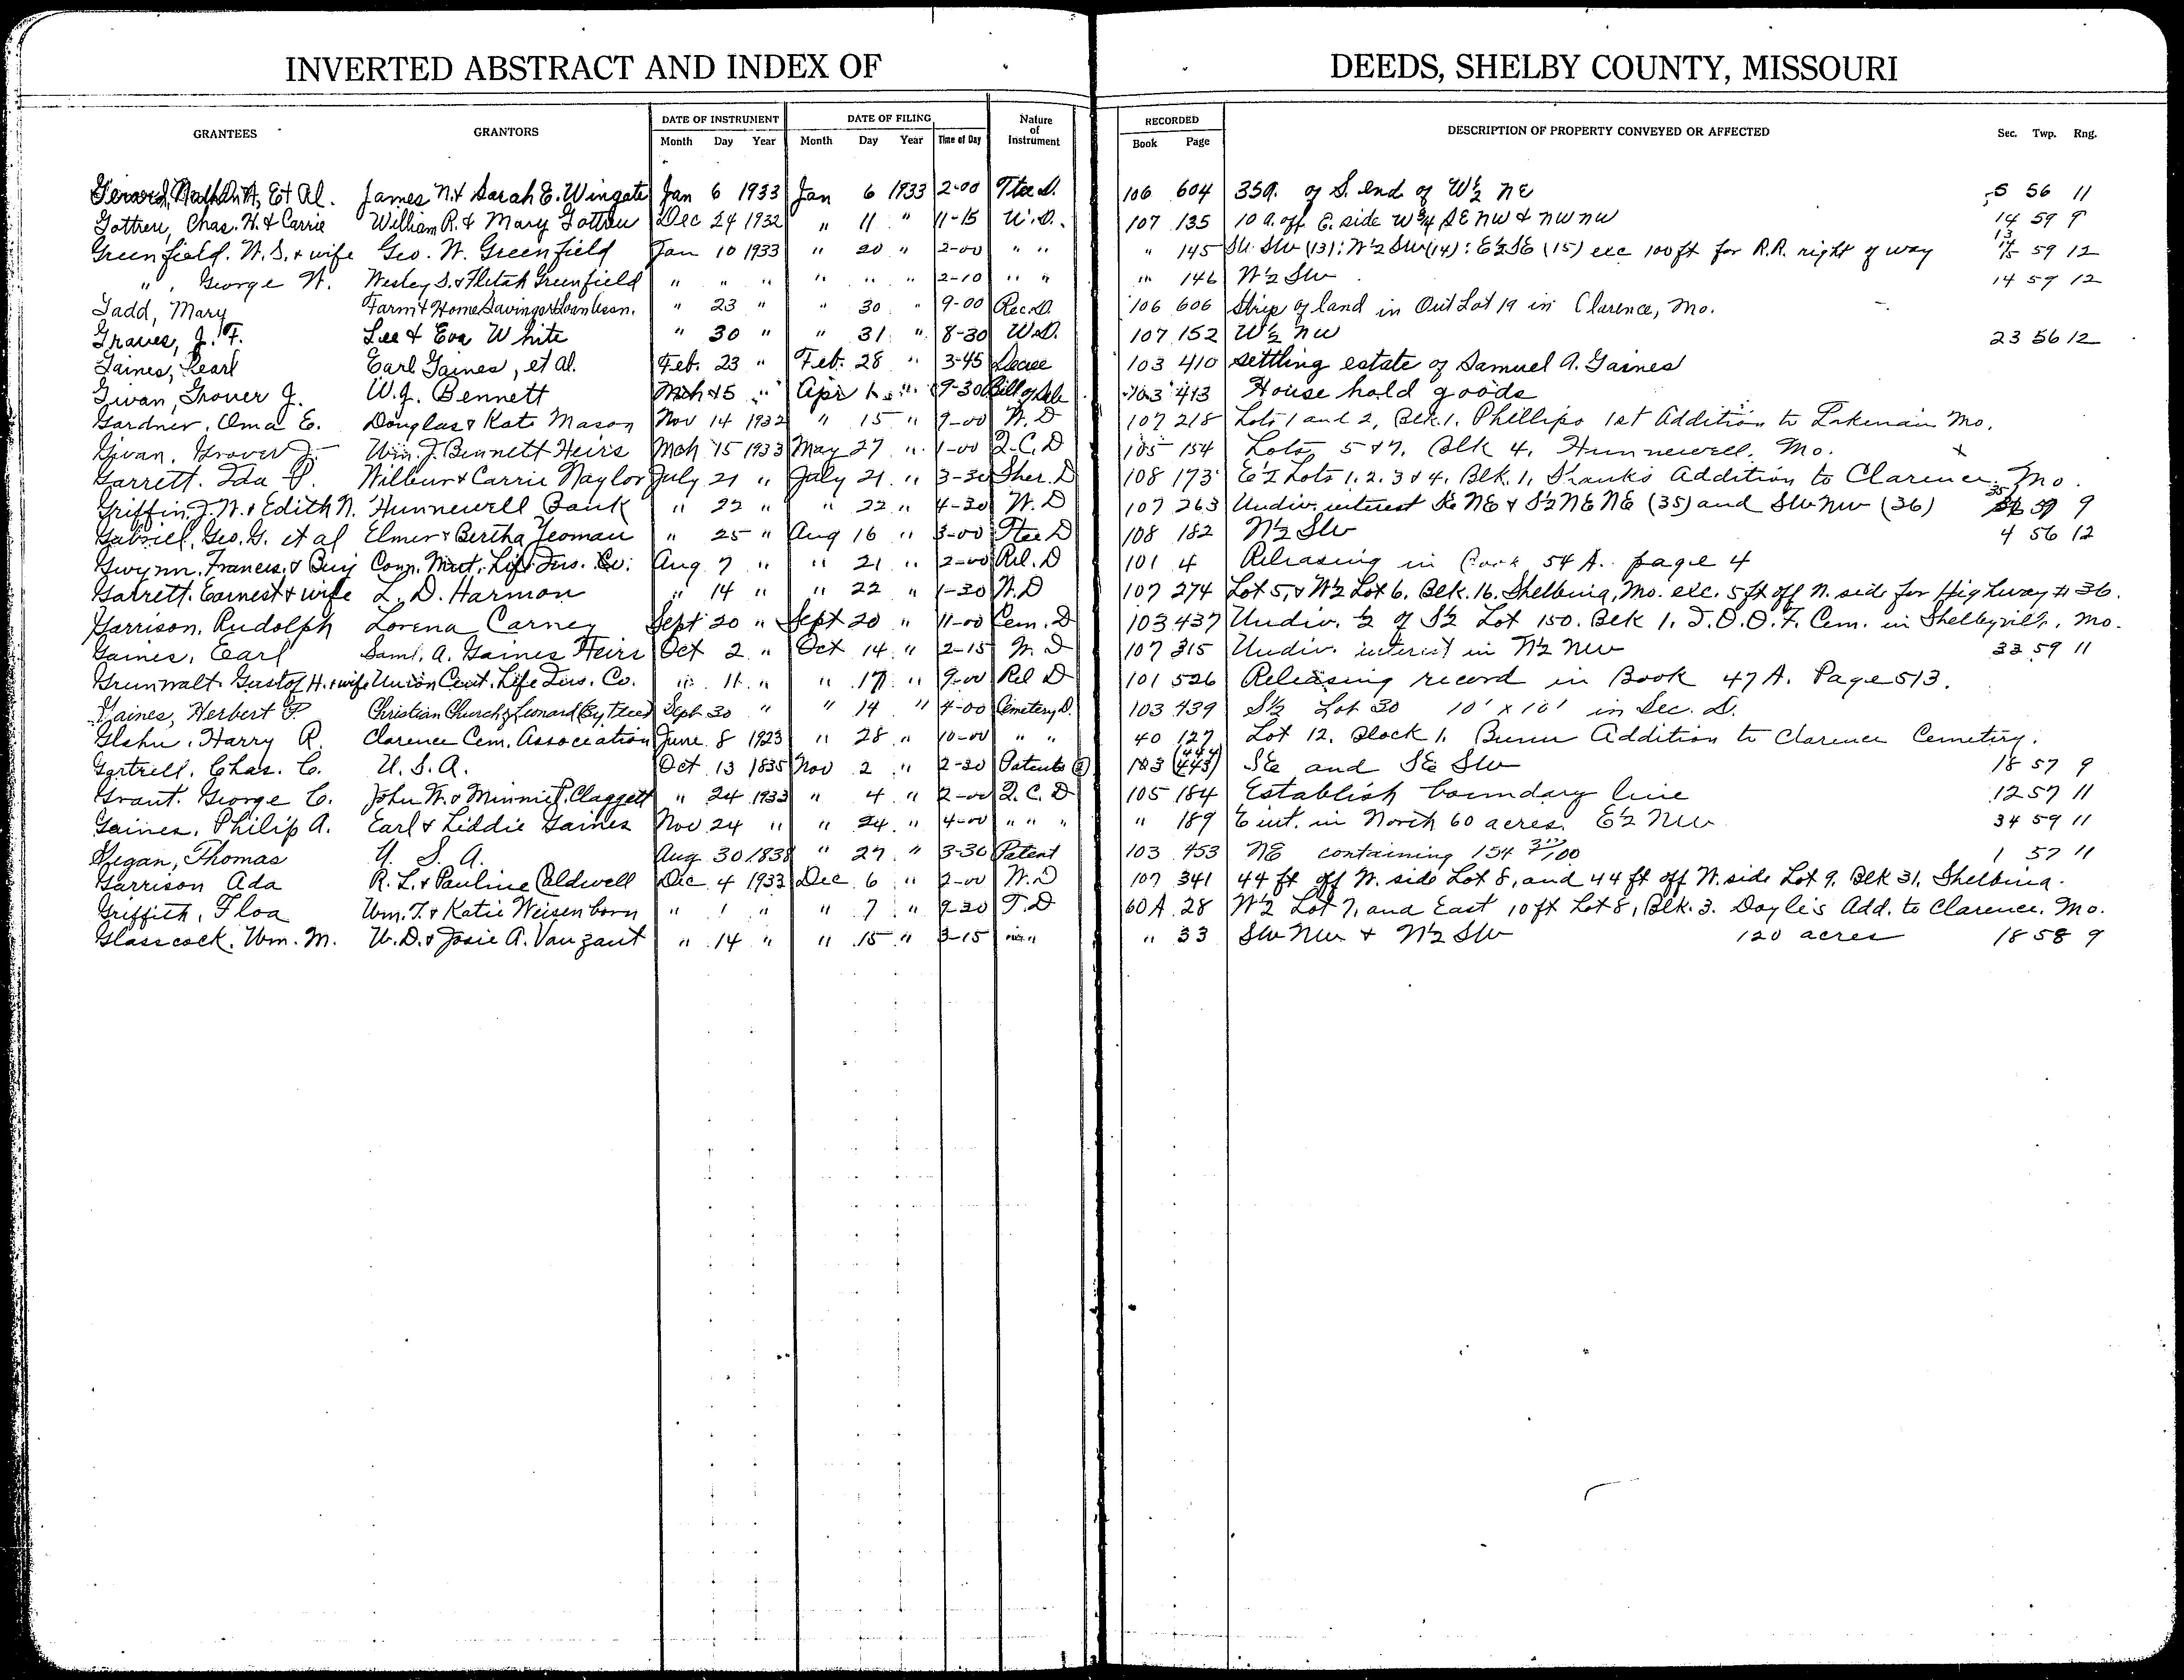 INVERTED ABSTRACT AND INDEX OF DEEDS, SHELBY COUNTY, MISSOURI
GRANTEES GRANTORS DATE OF INSTRUMENT DATE OF FILING Nature of Instrument RECORDED DESCRIPTION OF PROPERTY CONVEYED OR AFFECTED Sec. Twp. Rng.
Month Day Year Month Day Year Time of Day Book Page
Et Al. James N. & Sarah E. Wingate Jan 6 1933 Jan 6 1933 2-00 Ttee D. 106 604 35 a. of S. end of W½ NE 5 56 11
Gottreu, Chas. H. & Carrie William R. & Mary Gottreu Dec 24 1932 " 11 " 11-15 W.D. 107 135 10 a. off E. side W¾ SE NW & NW NW 14 59 9
Greenfield. W. S. & wife Geo. W. Greenfield Jan 10 1933 " 20 " 2-00 " " " 145 SW. SW (13): W½ SW (14): E½ SE (15) exc 100 ft for R.R. right of way 13 14 15 59 12
" , George W. Wesley S. & Fletah Greenfield " " " " " " 2-10 " " " 146 W½ SW 14 59 12
Gadd, Mary Farm & Home Savings & Loan Assn. " 23 " " 30 " 9-00 Rec. D. 106 606 Strip of land in Out Lot 19 in Clarence, Mo.
Graves, J. F. Lee & Eva White " 30 " " 31 " 8-30 W.D. 107 152 W½ NW 23 56 12
Gaines, Pearl Earl Gaines, et al. Feb. 23 " Feb. 28 " 3-45 Decree 103 410 settling estate of Samuel A. Gaines
Givan, Grover J. W.J. Bennett Mch 15 " Apr 1 " 9-30 Bill of Sale 103 413 House hold goods
Gardner, Oma E. Douglas & Kate Mason Nov 14 1932 " 15 " 9-00 W. D 107 218 Lots 1 and 2, Blk. 1. Phillips 1st Addition to Lakenan Mo.
Givan, Grover J. Wm. J. Bennett Heirs Mch 15 1933 May 27 " 1-00 Q.C.D 105 154 Lots 5 & 7. Blk 4. Hunnewell. Mo. x
Garrett. Ida P. Wilbur & Carrie Naylor July 21 " July 21 " 3-30 Sher. D 108 173 E½ Lots 1. 2. 3 & 4. Blk. 1, Shanks Addition to Clarence, Mo.
Griffin, J. W. & Edith N. Hunnewell Bank " 22 " " 22 " 4-30 W. D 107 263 Undiv. interest SE NE & S½ NE NE (35) and SW NW (36) 35 36 59 9
Gabriel, Geo. G. et al Elmer & Bertha Yeoman " 25 " Aug 16 " 3-00 Ttee D 108 182 N½ SW 4 56 12
Gwynn. Frances & Benj Conn. Mut. Life Ins. Co. Aug 7 " " 21 " 2-00 Rel. D 101 4 Releasing in Book 54 A. page 4
Garrett. Earnest & wife L. D. Harmon " 14 " " 22 " 1-30 W.D 107 274 Lot 5, & W½ Lot 6. Blk. 16. Shelbina, Mo. exc. 5 ft off N. side for Highway # 36.
Garrison. Rudolph Lorena Carney Sept 20 " Sept 20 " 11-00 Cem. D 103 437 Undiv. ½ of S½ Lot 150. Blk 1. I.O.O.F. Cem. in Shelbyville, Mo.
Gaines, Earl Saml. A. Gaines Heirs Oct 2 " Oct 14 " 2-15 W. D 107 315 Undiv. interest in N½ NW 33 59 11
Grunwalt. Gustof H. & wife Union Cent. Life Ins. Co. " 11 " " 17 " 9-00 Rel D 101 526 Releasing record in Book 47 A. Page 513.
Gaines, Herbert P. Christian Church of Leonard (By Ttees) Sept 30 " " 14 " 4-00 Cemetery D. 103 439 S½ Lot 30 10' x 10' in Sec. D.
Harry R. Clarence Cem. Association June 8 1923 " 28 " 10-00 " " 40 127 Lot 12. Block 1. Addition to Clarence Cemetery.
Gartrell. Chas. C. U. S. A. Oct 13 1835 Nov 2 " 2-30 Patents (2) 103 (444) (443) SE and SE SW 18 57 9
Grant. George C. John W. & Minnie P. Claggett " 24 1933 " 4 " 2-00 Q. C. D 105 184 Establish boundary line 12 57 11
Gaines, Philip A. Earl & Liddie Gaines Nov 24 " " 24 " 4-00 " " " " 189 int. in North 60 acres. E½ NW 34 59 11
Gegan, Thomas U. S. A. Aug 30 1838 " 27 " 3-30 Patent 103 453 NE containing 154 /100 1 57 11
Garrison Ada R. L. & Pauline Caldwell Dec 4 1933 Dec 6 " 2-00 W. D 107 341 44 ft off N. side Lot 8, and 44 ft off N. side Lot 9. Blk 31, Shelbina.
Griffith, Floa Wm. T. & Katie Weisenborn " 1 " " 7 " 9-30 T. D 60A 28 W½ Lot 7, and East 10 ft Lot 8, Blk. 3. Doyle's Add. to Clarence. Mo.
Glasscock. Wm. M. W. D. & Josie A. Vanzant " 14 " " 15 " 3-15 " " " 33 SW NW & N½ SW 120 acres 18 58 9